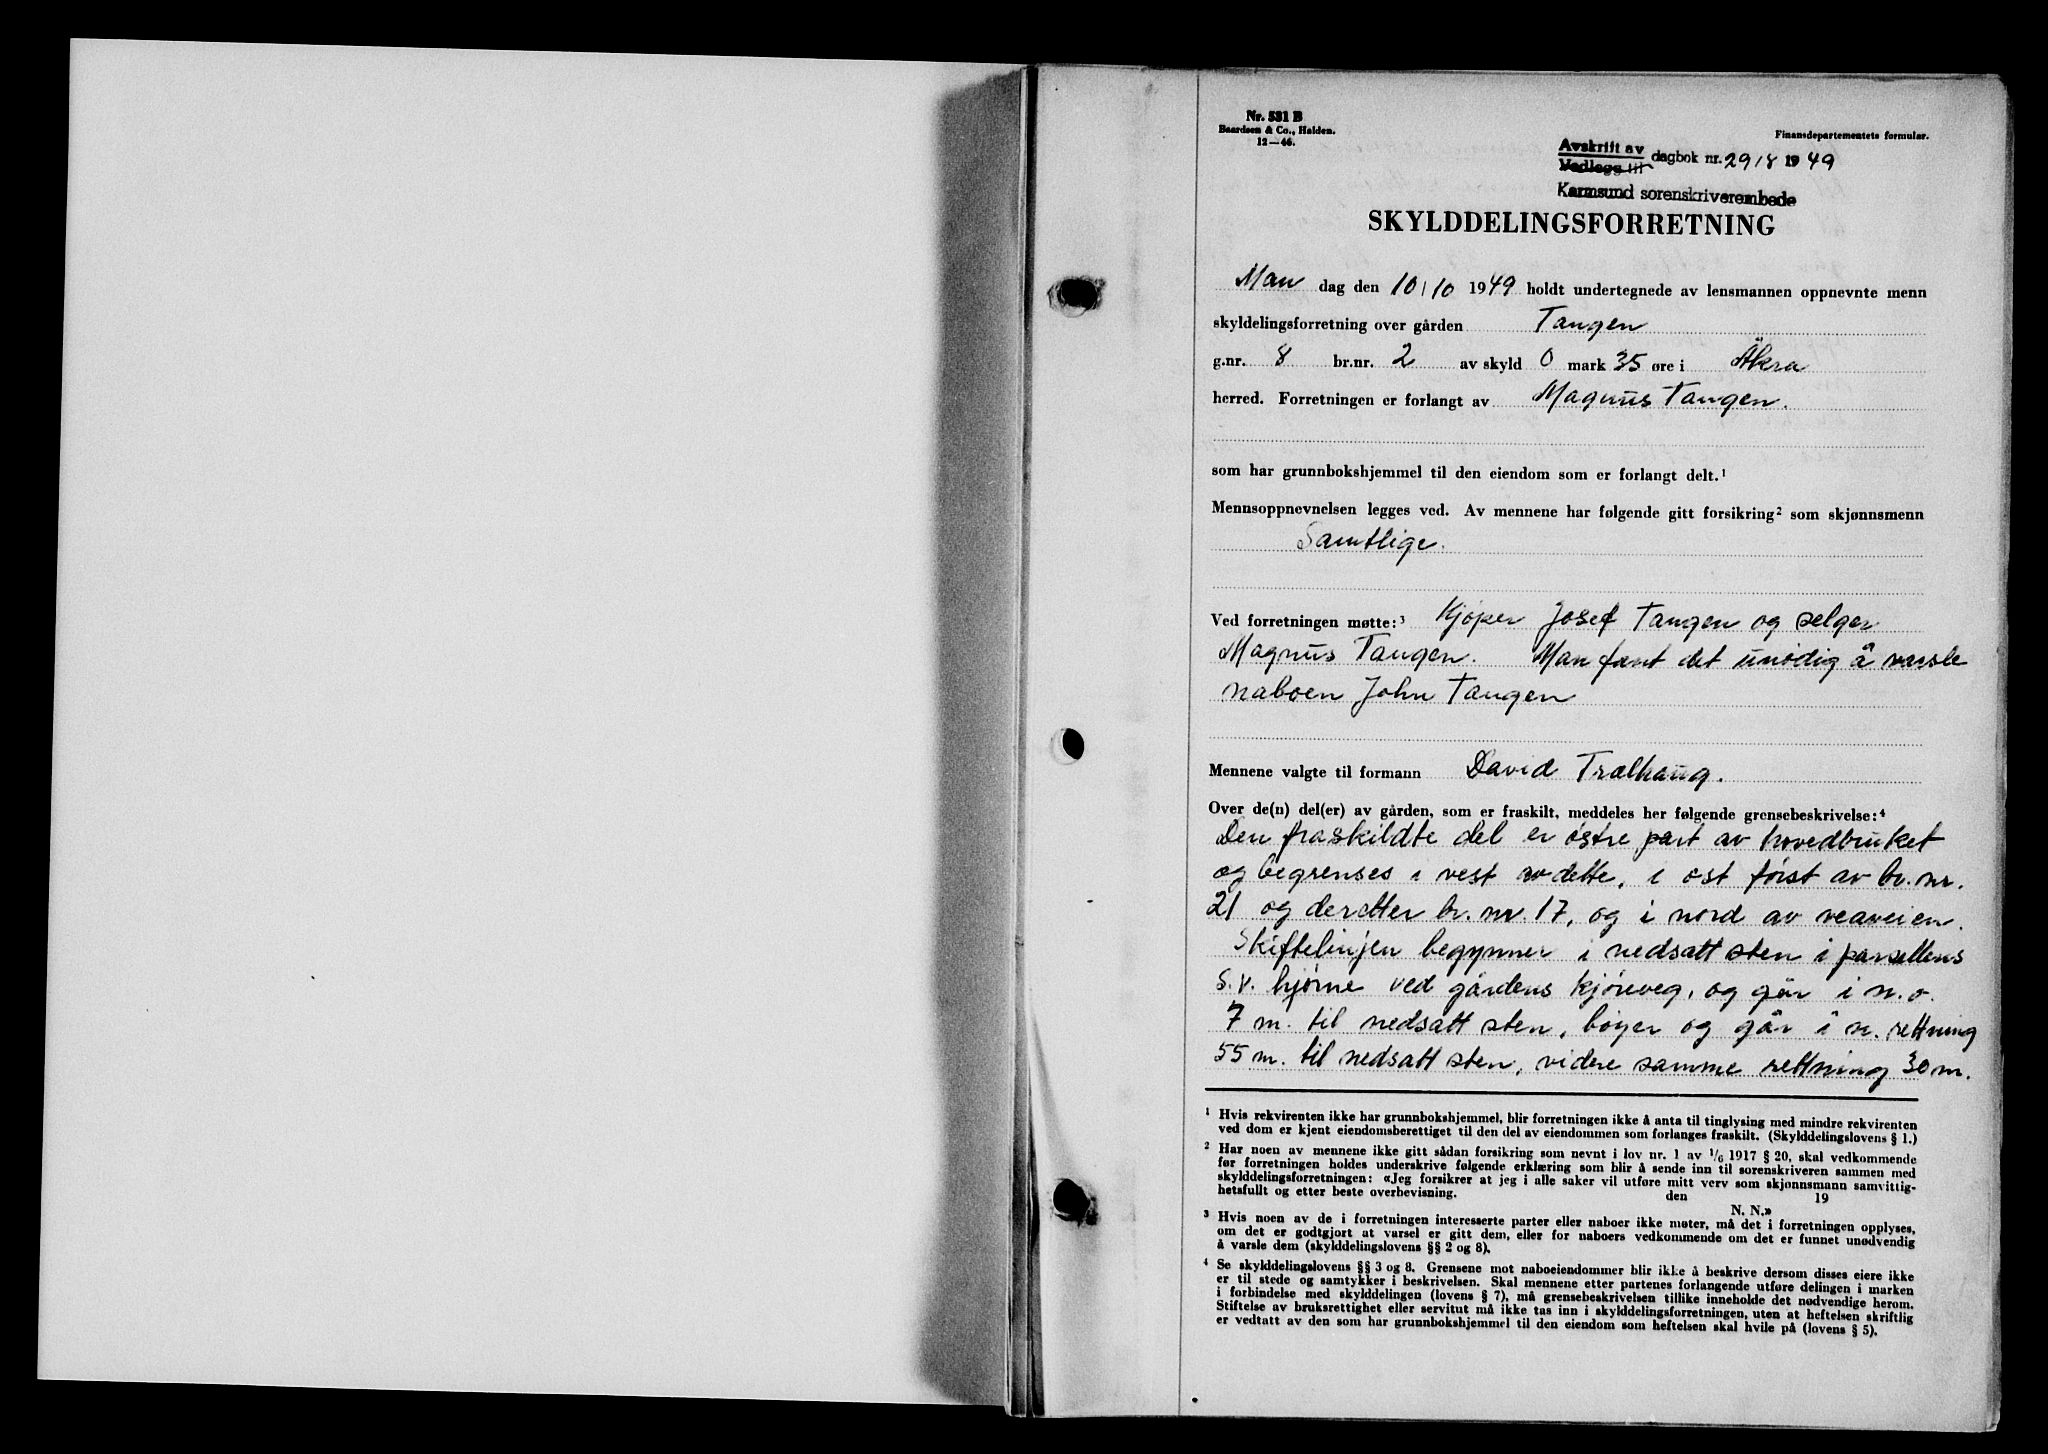 Nr. 531 B
Baardsen & Co., Halden.
12—46.
Finansdepartementets formular.
Avskrift av
Vedlegg til dagbok nr. 2918 1949
Karmsund sorenskriverembede
SKYLDDELINGSFORRETNING
Man dag den 10/10 1949 holdt undertegnede av lensmannen oppnevnte menn
skyldelingsforretning over gården Tangen
g.nr. 8 br.nr. 2 av skyld 0 mark 35 øre i Åkra
herred. Forretningen er forlangt av Magnus Tangen.
som har grunnbokshjemmel til den eiendom som er forlangt delt.¹
Mennsoppnevnelsen legges ved. Av mennene har følgende gitt forsikring² som skjønnsmenn
Samtlige.
Ved forretningen møtte:³ Kjøper Josef Tangen og selger
Magnus Tangen. Man fant det unødig å varsle
naboen John Tangen
Mennene valgte til formann David Trælhaug.
Over de(n) del(er) av gården, som er fraskilt, meddeles her følgende grensebeskrivelse:⁴
Den fraskildte del er østre part av hovedbruket
og begrenses i vest av dette, i øst først av br. nr.
21 og deretter br. nr. 17, og i nord av veaveien.
Skiftelinjen begynner i nedsatt sten i parsellens
s.v. hjørne ved gårdens kjøreveg, og går i n.o.
7 m. til nedsatt sten, bøyer og går i n. rettning
55 m. til nedsatt sten, videre samme rettning 30 m.
¹ Hvis rekvirenten ikke har grunnbokshjemmel, blir forretningen ikke å anta til tinglysing med mindre rekvirenten
ved dom er kjent eiendomsberettiget til den del av eiendommen som forlanges fraskilt. (Skylddelingslovens § 1.)
² Har noen av mennene ikke gitt sådan forsikring som nevnt i lov nr. 1 av 1/6 1917 § 20, skal vedkommende
før forretningen holdes underskrive følgende erklæring som blir å sende inn til sorenskriveren sammen med
skylddelingsforretningen: «Jeg forsikrer at jeg i alle saker vil utføre mitt verv som skjønnsmann samvittig-
hetsfullt og etter beste overbevisning. den 19
N. N.»
³ Hvis noen av de i forretningen interesserte parter eller naboer ikke møter, må det i forretningen opplyses,
om det er godtgjort at varsel er gitt dem, eller for naboers vedkommende om det er funnet unødvendig
å varsle dem (skylddelingslovens §§ 2 og 8).
⁴ Se skylddelingslovens §§ 3 og 8. Grensene mot naboeiendommer blir ikke å beskrive dersom disses eiere ikke
er til stede og samtykker i beskrivelsen. Skal mennene etter partenes forlangende utføre delingen i marken
i forbindelse med skylddelingen (lovens § 7), må grensebeskrivelsen tillike inneholde det nødvendige herom.
Stiftelse av bruksrettighet eller servitut må ikke tas inn i skylddelingsforretningen, uten at heftelsen skriftlig
er vedtatt av den som har grunnbokshjemmel til den eiendom som heftelsen skal hvile på (lovens § 5).